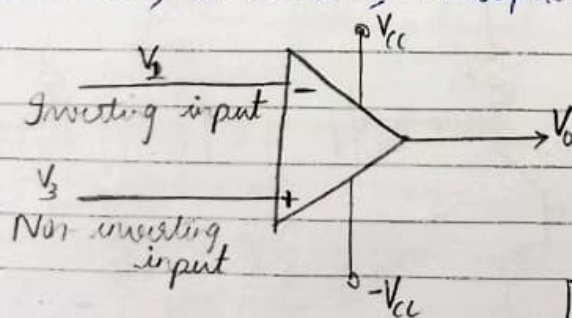 VCC
V2
-
Inverting input
Vo
V3
+
Non inverting
input
-VCC